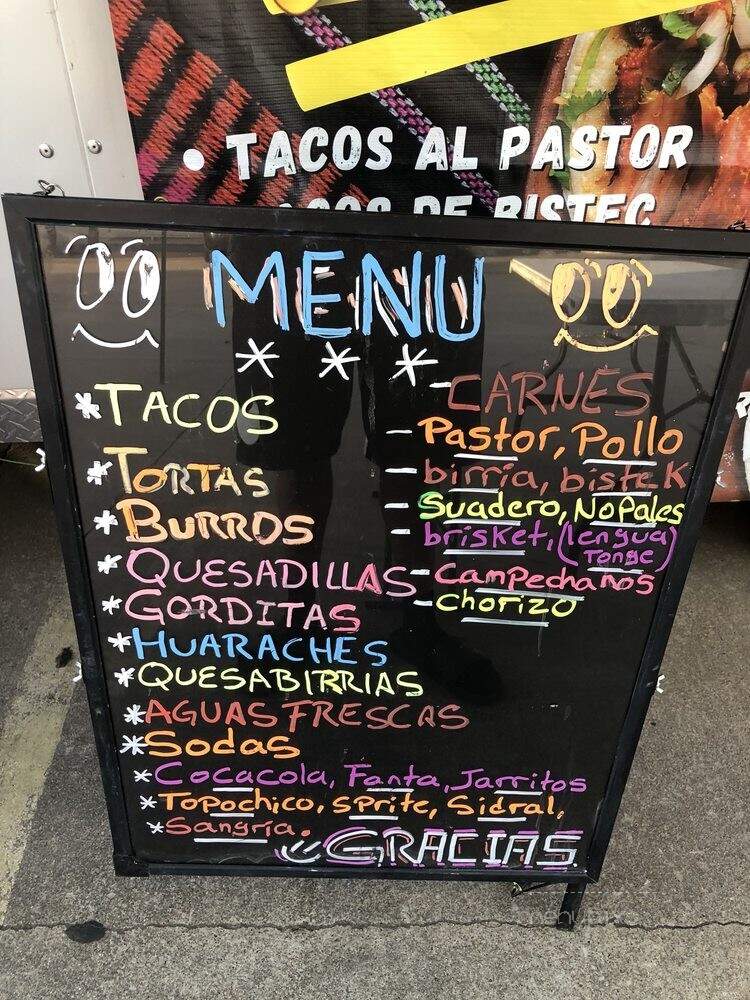 • TACOS AL PASTOR
TACOS DE BISTEC
MENU
* * *
*TACOS
*TORTAS
*BURROS
*QUESADILLAS
*GORDITAS
*HUARACHES
*QUESABIRRIAS
*AGUAS FRESCAS
*Sodas
*Cocacola, Fanta, Jarritos
*Topochico, sprite, Sidral,
*Sangría.
- CARNES
- Pastor, Pollo
- birria, bisteK
- Suadero, NoPales
- brisket, (lengua)
Tonge
- Campechanos
- chorizo
GRACIAS
menupix